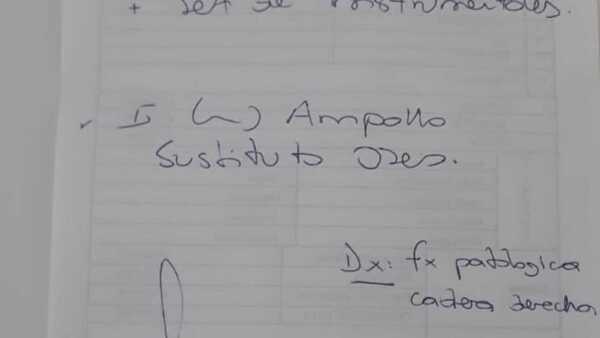 + Set de instrumentales.
I (~) Ampollo
Sustituto Oseo.
Dx: fx patologica
cadera derecha